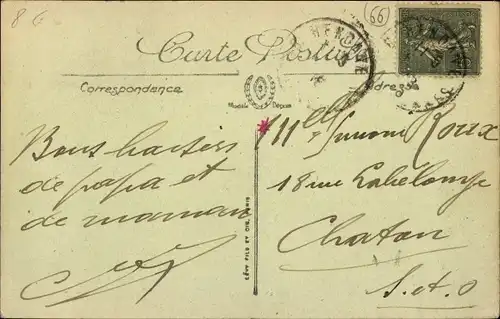 8 6
66
HENDAYE
Carte Postale
Correspondance
Adresse
Modèle Déposé
Bons baisers
de papa et
de maman
Mlle Simone Roux
18 rue Labelonye
Chatou
S. et. O
LÉVY FILS ET CIE, PARIS